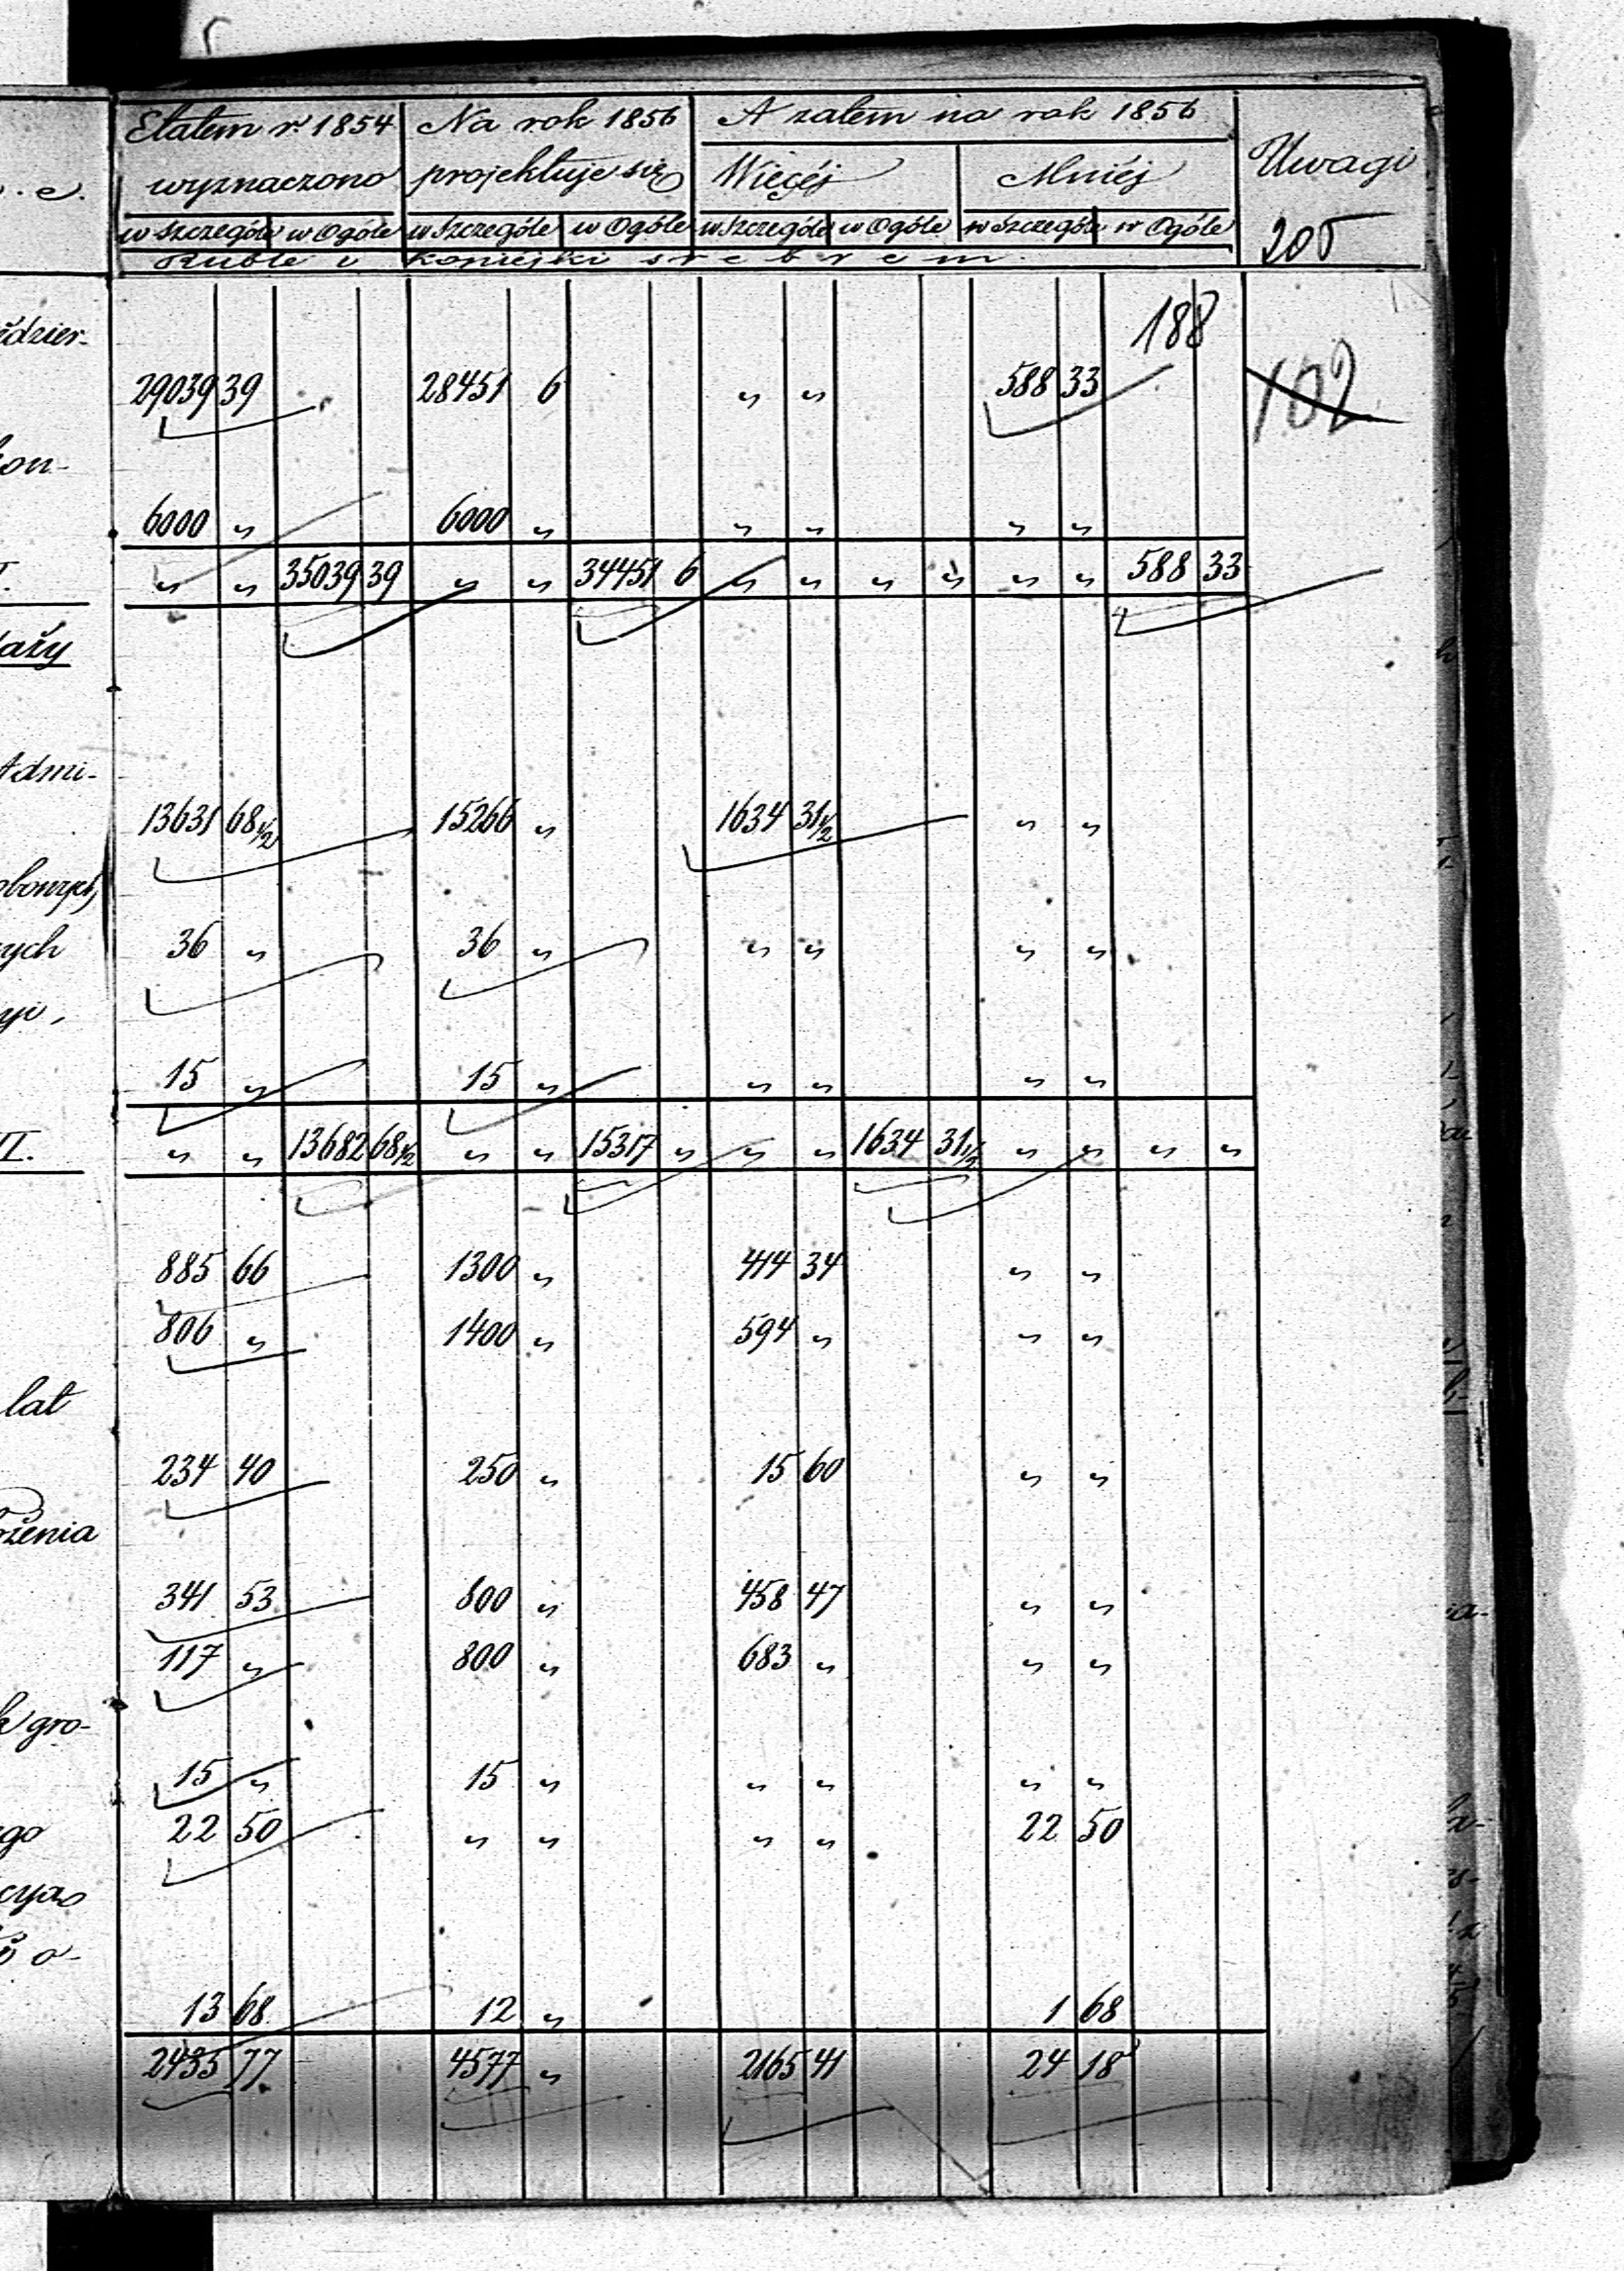 Etatem r. 1854 Na rok 1856 A zatem na rok 1856 Uwagi
wyznaczono projektuje się Więcéj Mniéj
w szczególe w Ogóle w szczególe w Ogóle w szczególe w Ogóle w szczególe w Ogóle 205
Ruble i kopiejki srebrem.
188
dzier-
29039 39 28451 6 " " 588 33 102
kon-
6000 " 6000 " " " " "
" " 35039 39 " " 34451 6 " " " " " " 588 33
Admi-
13631 68½ 15266 " 1634 31½ " "
obowych
ych 36 " 36 " " " " "
yi,
15 " 15 " " " " "
II. " " 13682 68½ " " 15317 " " " 1634 31½ " " " "
885 66 1300 " 414 34 " "
806 " 1400 " 594 " " "
lat
234 40 250 " 15 60 " "
żenia
341 53 800 " 458 47 " "
117 " 800 " 683 " " "
gro-
15 " 15 " " " " "
go 22 50 " " " " 22 50
cya
o-
13 68 12 " 1 68
2435 77 4577 " 2165 41 24 18